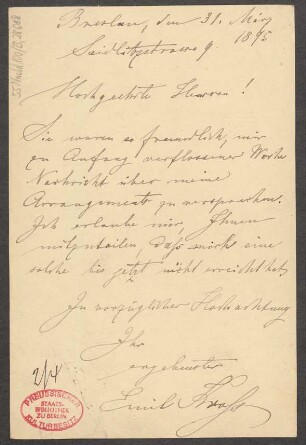 Breslau, den 31. März
Seidlitzstrasse 9. 1895
Hochgeehrte Herren!
Sie waren so freundlich, mir
zu Anfang verflossener Woche
Nachricht über meine
Arrangements zu versprechen.
Ich erlaube mir, Ihnen
mitzuteilen, dass mich eine
solche bis jetzt nicht erreicht hat.
In vorzüglicher Hochachtung
Ihr
ergebenster
Emil
2/4
PREUSSISCHER
STAATS-
BIBLIOTHEK
ZU BERLIN
KULTURBESITZ